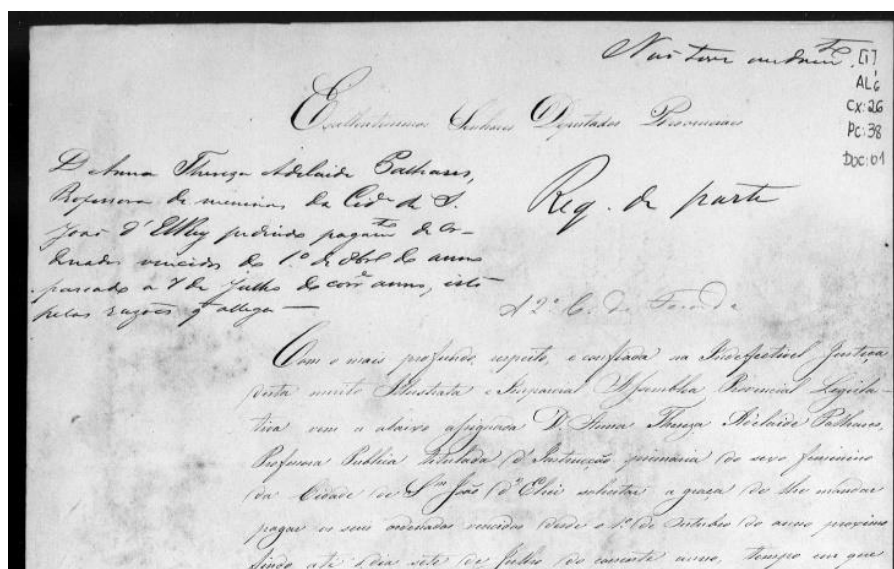 Não teve andam.to
[1]
AL6
CX:26
PC:38
Doc:01
Excellentissimos Senhores Deputados Provinciaes
D. Anna Thereza Adelaide Palhares,
Professora de meninas da Cid.e de S.
João d'ElRey pedindo pagam.to de or-
denados vencidos do 1.º de 8br.o do anno
passado a 7 de Julho do corr.e anno, isto
pelas razões q allega —
Req. de parte
A 2ª C. de Fazenda
Com o mais profundo respeito, e confiada na Indefectivel Justiça
desta muito Illustrada e Imparcial Assemblea Provincial Legisla-
tiva vem a abaixo assignada D. Anna Thereza Adelaide Palhares,
Professora Publica titulada d'Instrucção primaria do sexo feminino
da Cidade de S.m João d'ElRei solicitar a graça de lhe mandar
pagar os seus ordenados vencidos desde o 1.º de Outubro do anno proximo
findo até o dia sete de Julho do corrente anno, tempo em que